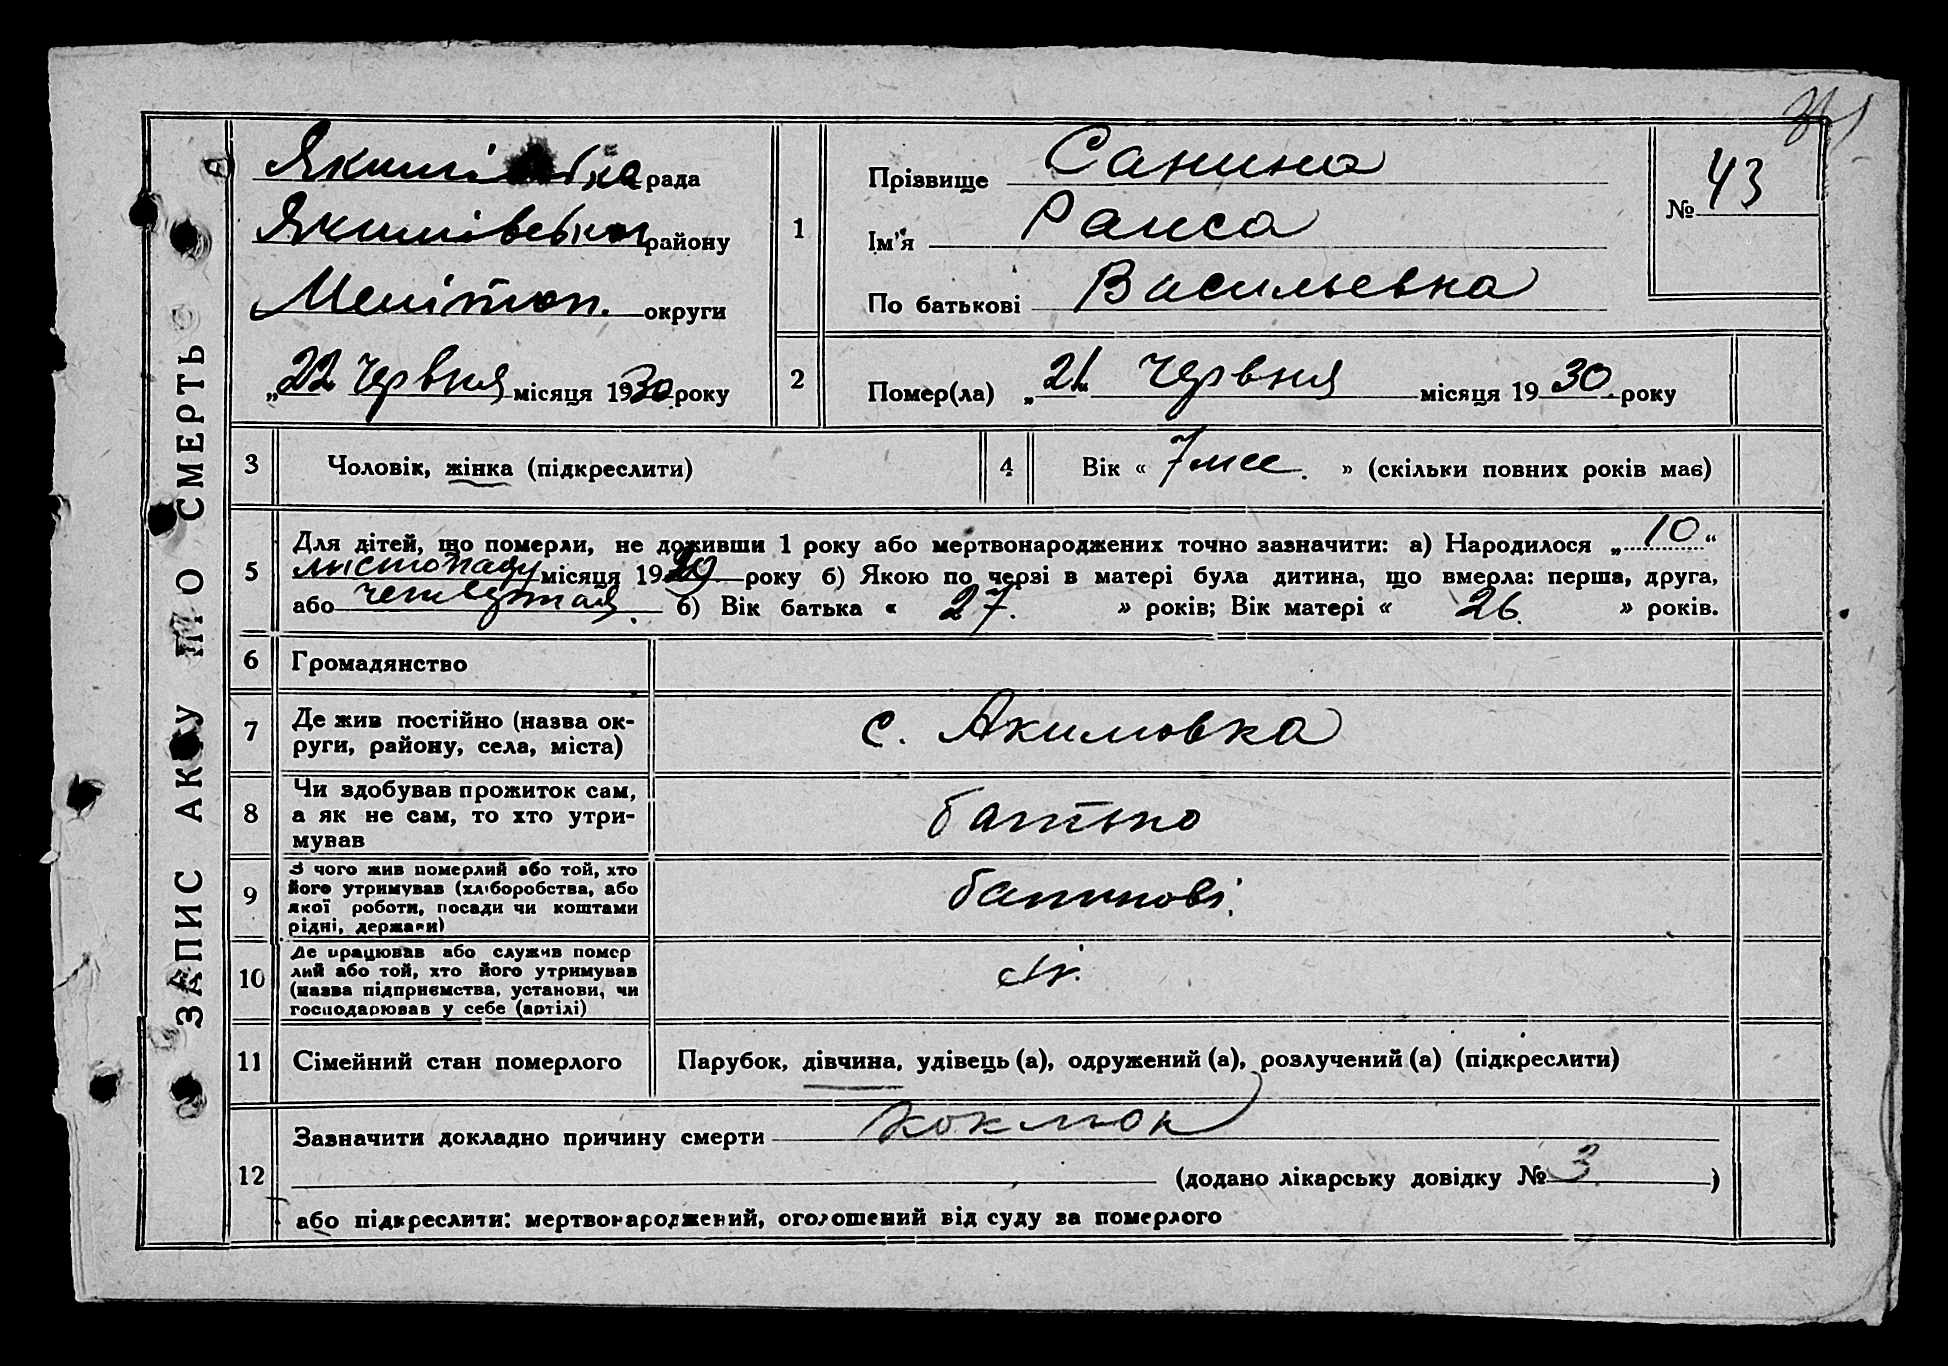 ЗАПИС АКТУ ПРО СМЕРТЬ
рада
Якимівськог району
Меліт­оп. округи
„22 червня місяця 1930 року
1
Прізвище Санина
Ім'я Раиса
По батькові Васильевна
№ 43
2
Помер(ла) „21 червня місяця 1930 року
3 Чоловік, жінка (підкреслити)
4 Вік « 7 мес. » (скільки повних років має)
5
Для дітей, що померли, не доживши 1 року або мертвонароджених точно зазначити: а) Народилося „10“
листопаду місяця 1929 року б) Якою по черзі в матері була дитина, що вмерла: перша, друга,
або четвертая. б) Вік батька « 27. » років; Вік матері « 26. » років.
6 Громадянство
7
Де жив постійно (назва ок-
руги, району, села, міста)
с. Акимовка
8
Чи здобував прожиток сам,
а як не сам, то хто утри-
мував
батько
9
З чого жив померлий або той, хто
його утримував (хліборобства, або
якої роботи, посади чи коштами
рідні, держави)
батькові.
10
Де працював або служив помер
лий або той, хто його утримував
(назва підприємства, установи, чи
господарював у себе (артілі)
11 Сімейний стан померлого
Парубок, дівчина, удівець (а), одружений (а), розлучений (а) (підкреслити)
12
Зазначити докладно причину смерти коклюк
(додано лікарську довідку № 3 )
або підкреслити: мертвонароджений, оголошений від суду за померлого